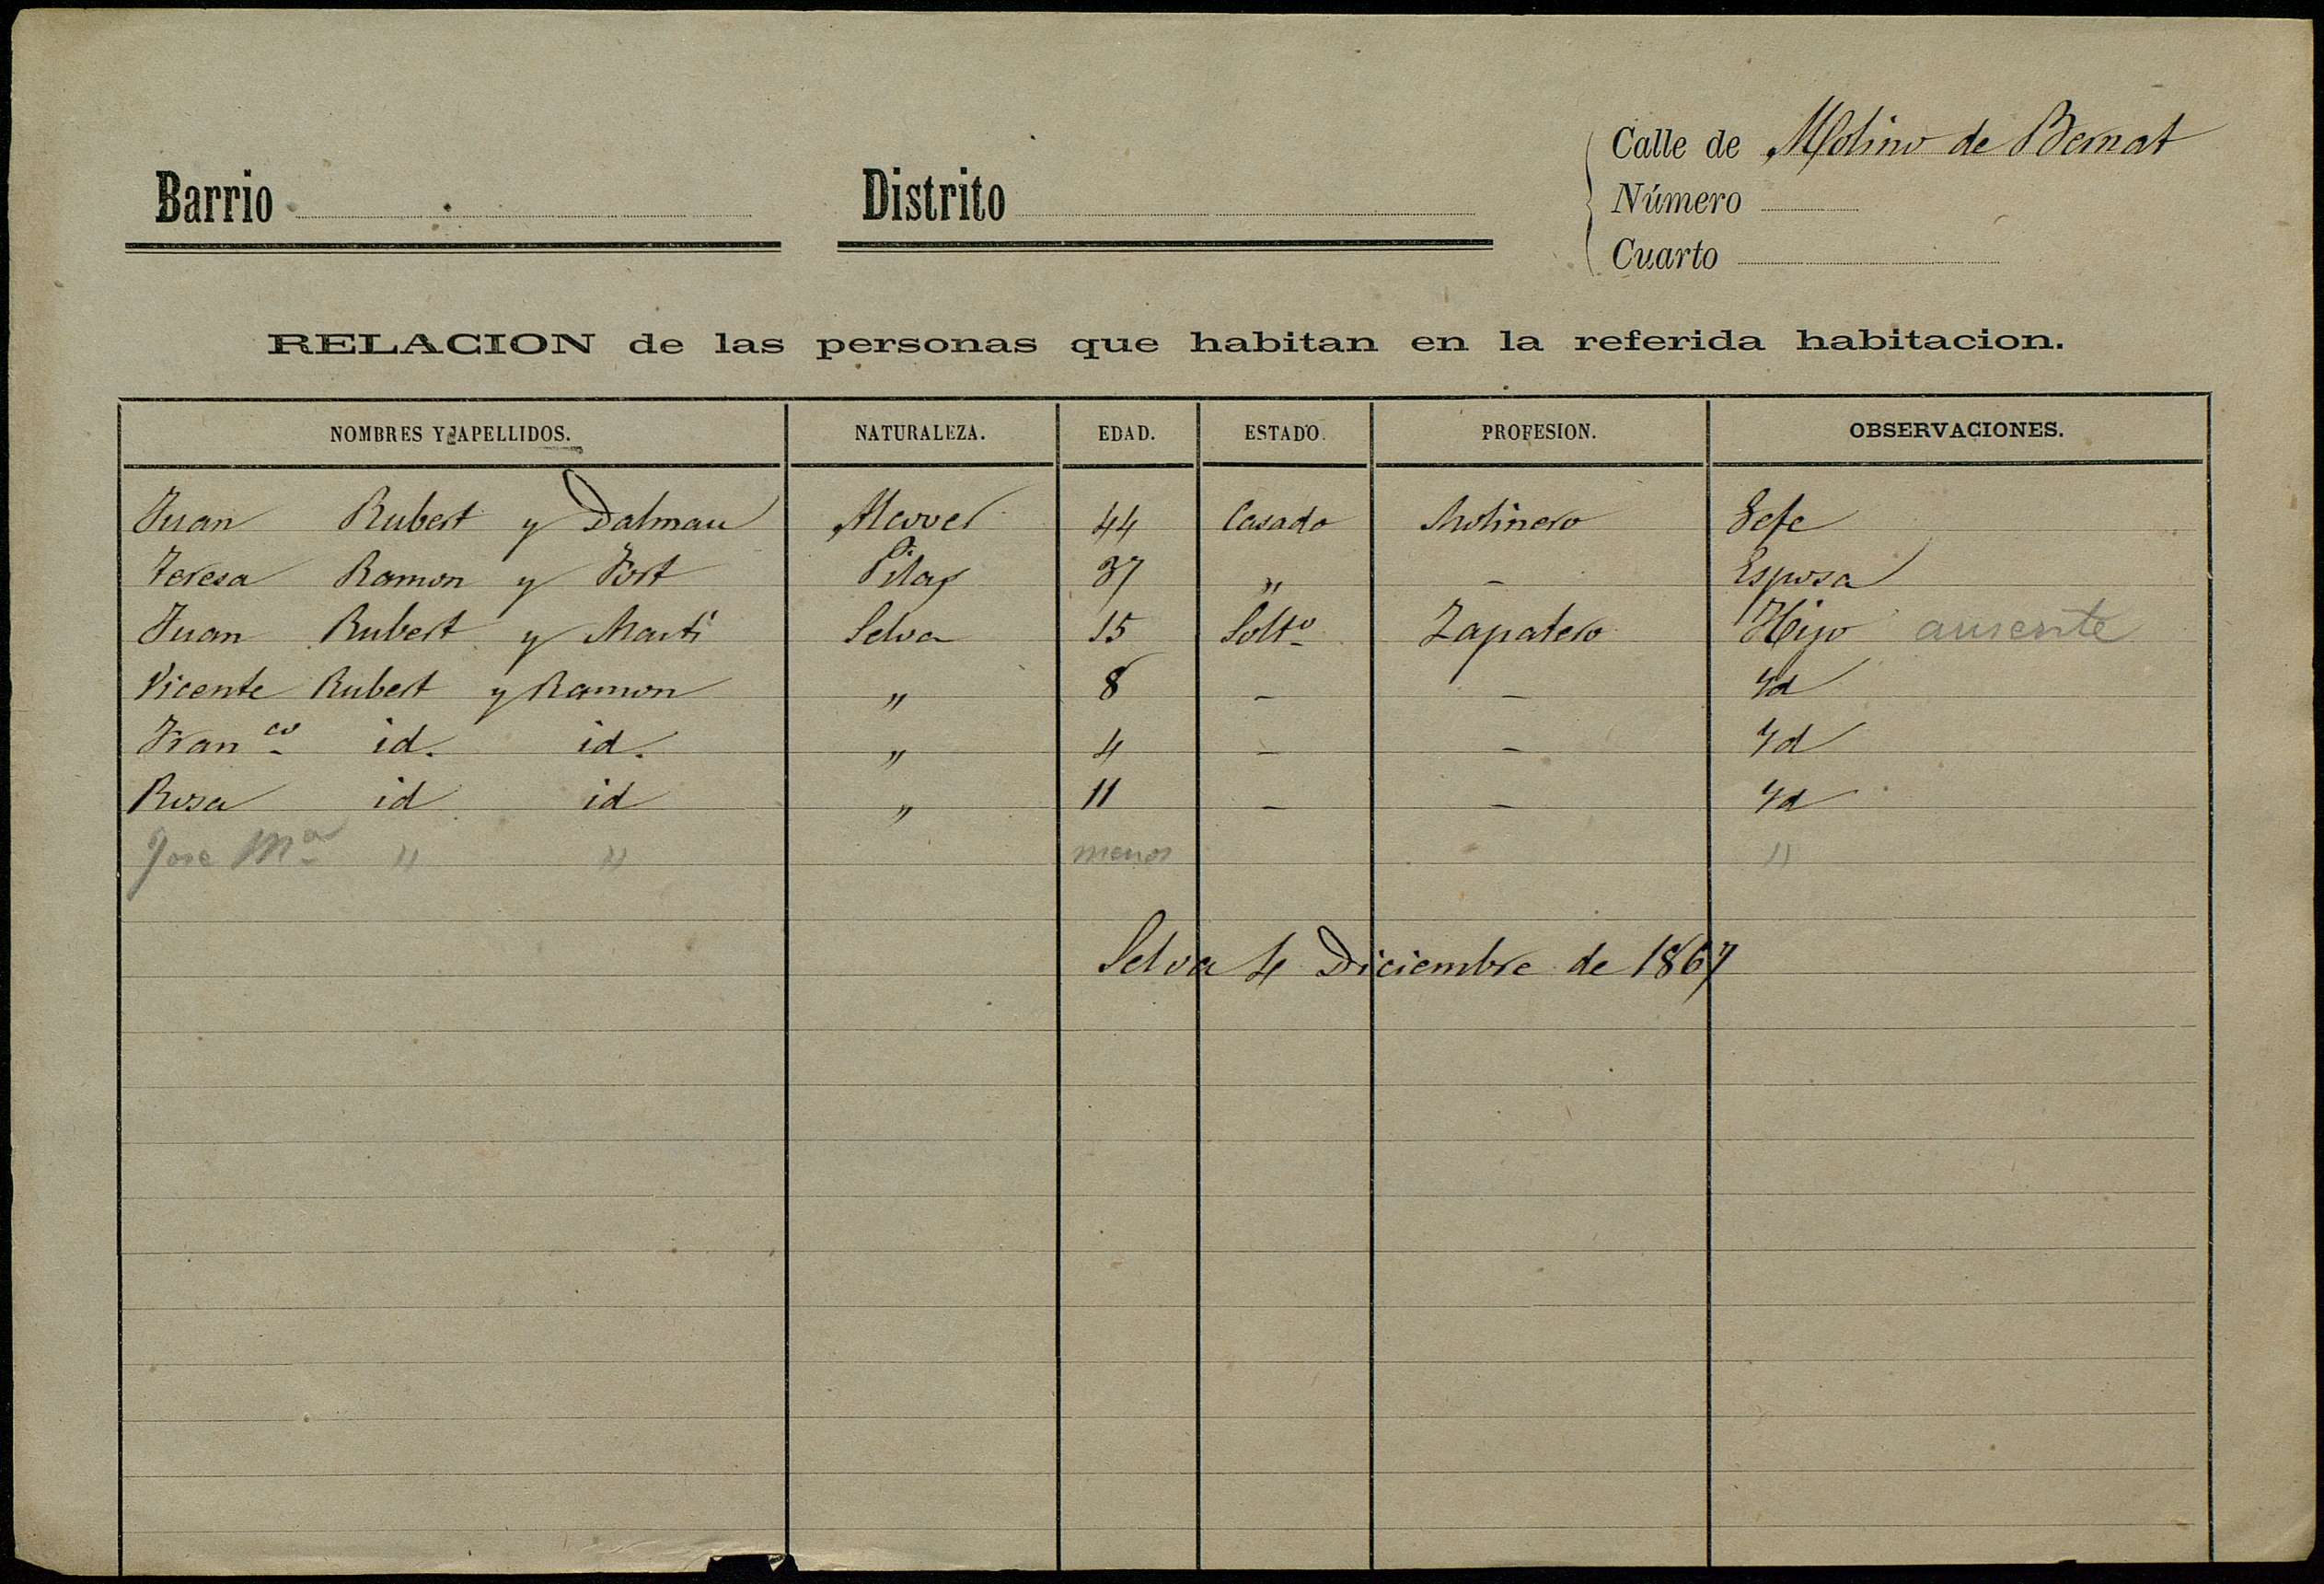 Calle de Molino de Bernat
Barrio Distrito Número
Cuarto
RELACION de las personas que habitan en la referida habitacion.
NOMBRES Y APELLIDOS. NATURALEZA. EDAD. ESTADO. PROFESION. OBSERVACIONES.
Juan Rubert y Dalmau Alcover 44 Casado Molinero Gefe
Teresa Ramon y Fort Pilas 37 " – Esposa
Juan Rubert y Marti Selva 15 Solto Zapatero Hijo ausente
Vicente Rubert y Ramon " 8 – – Yd
Franco id. id. " 4 – – Yd
Rosa id id " 11 – – Yd
Jose Ma " " menor "
Selva 4 Diciembre de 1867